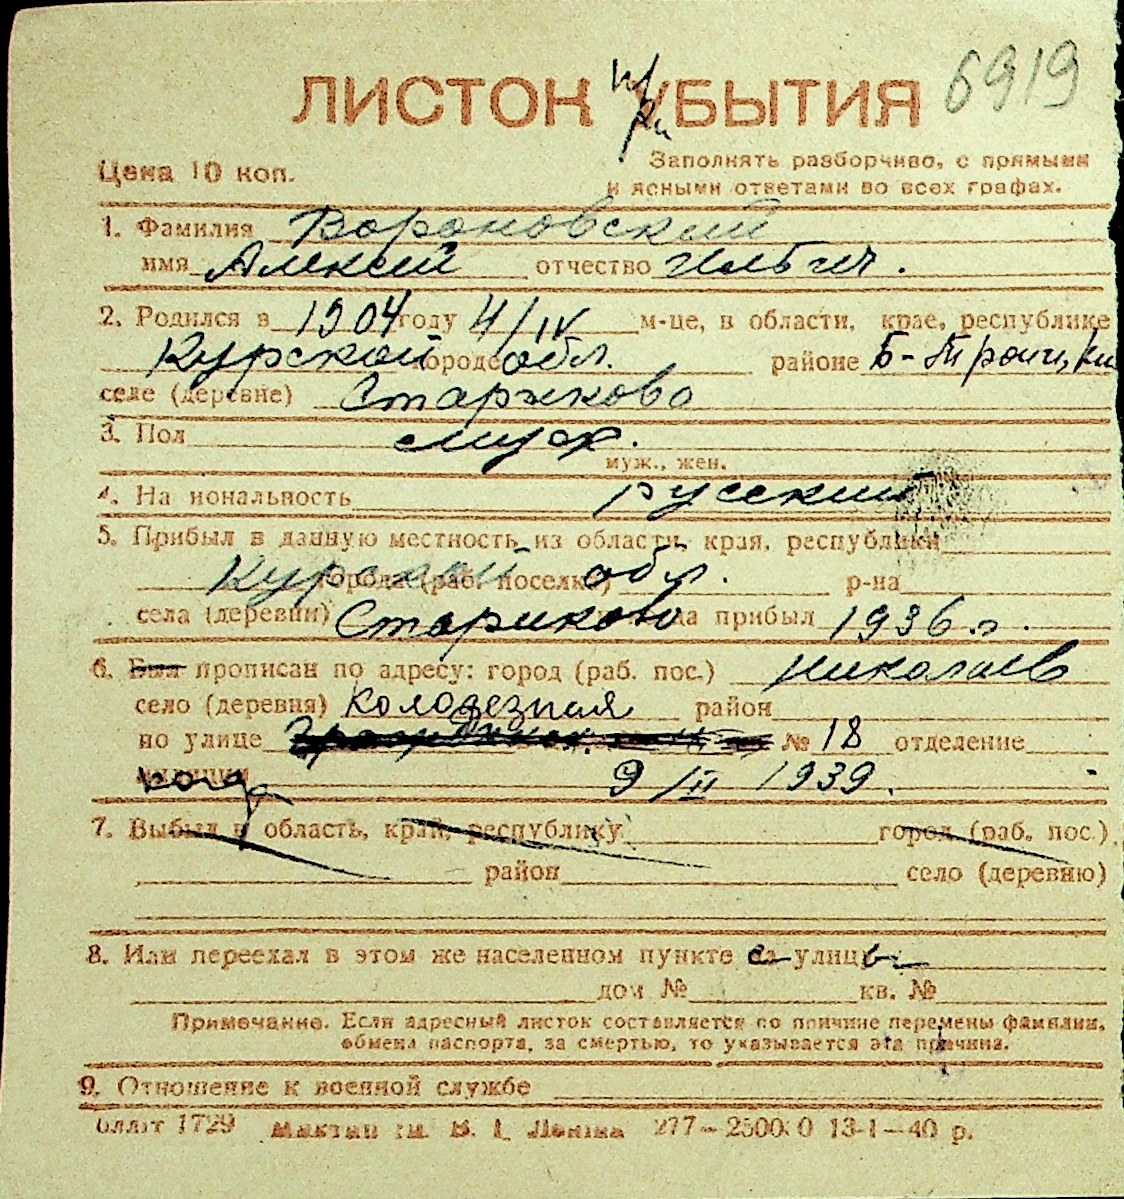 ЛИСТОК УБЫТИЯ 6919
при
Цена 10 коп.
Заполнять разборчиво, с прямыми
и ясными ответами во всех графах.
1. Фамилия Вороновский
имя Алексей отчество Ильич.
2. Родился в 1904 году 4/IV м-це, в области, крае, республике
Курской городе обл. районе Б-Троицки
селе (деревне) Стариково
3. Пол муж.
муж., жен.
4. Национальность русский
5. Прибыл в данную местность из области, края, республики
Курской города (раб. поселка) обл. р-на
села (деревни) Стариково прибыл 1936 г.
6. Был прописан по адресу: город (раб. пос.) Николаев
село (деревня) Колодезная район
по улице № 18 отделение
когда 9/II 1939.
7. Выбыл в область, край, республику город (раб. пос.)
район село (деревню)
8. Или переехал в этом же населенном пункте улицы
дом № кв. №
Примечание. Если адресный листок составляется по причине перемены фамилии,
обмена паспорта, за смертью, то указывается эта причина.
9. Отношение к военной службе
1729 им. В. І. Леніна 277— 13-1—40 р.